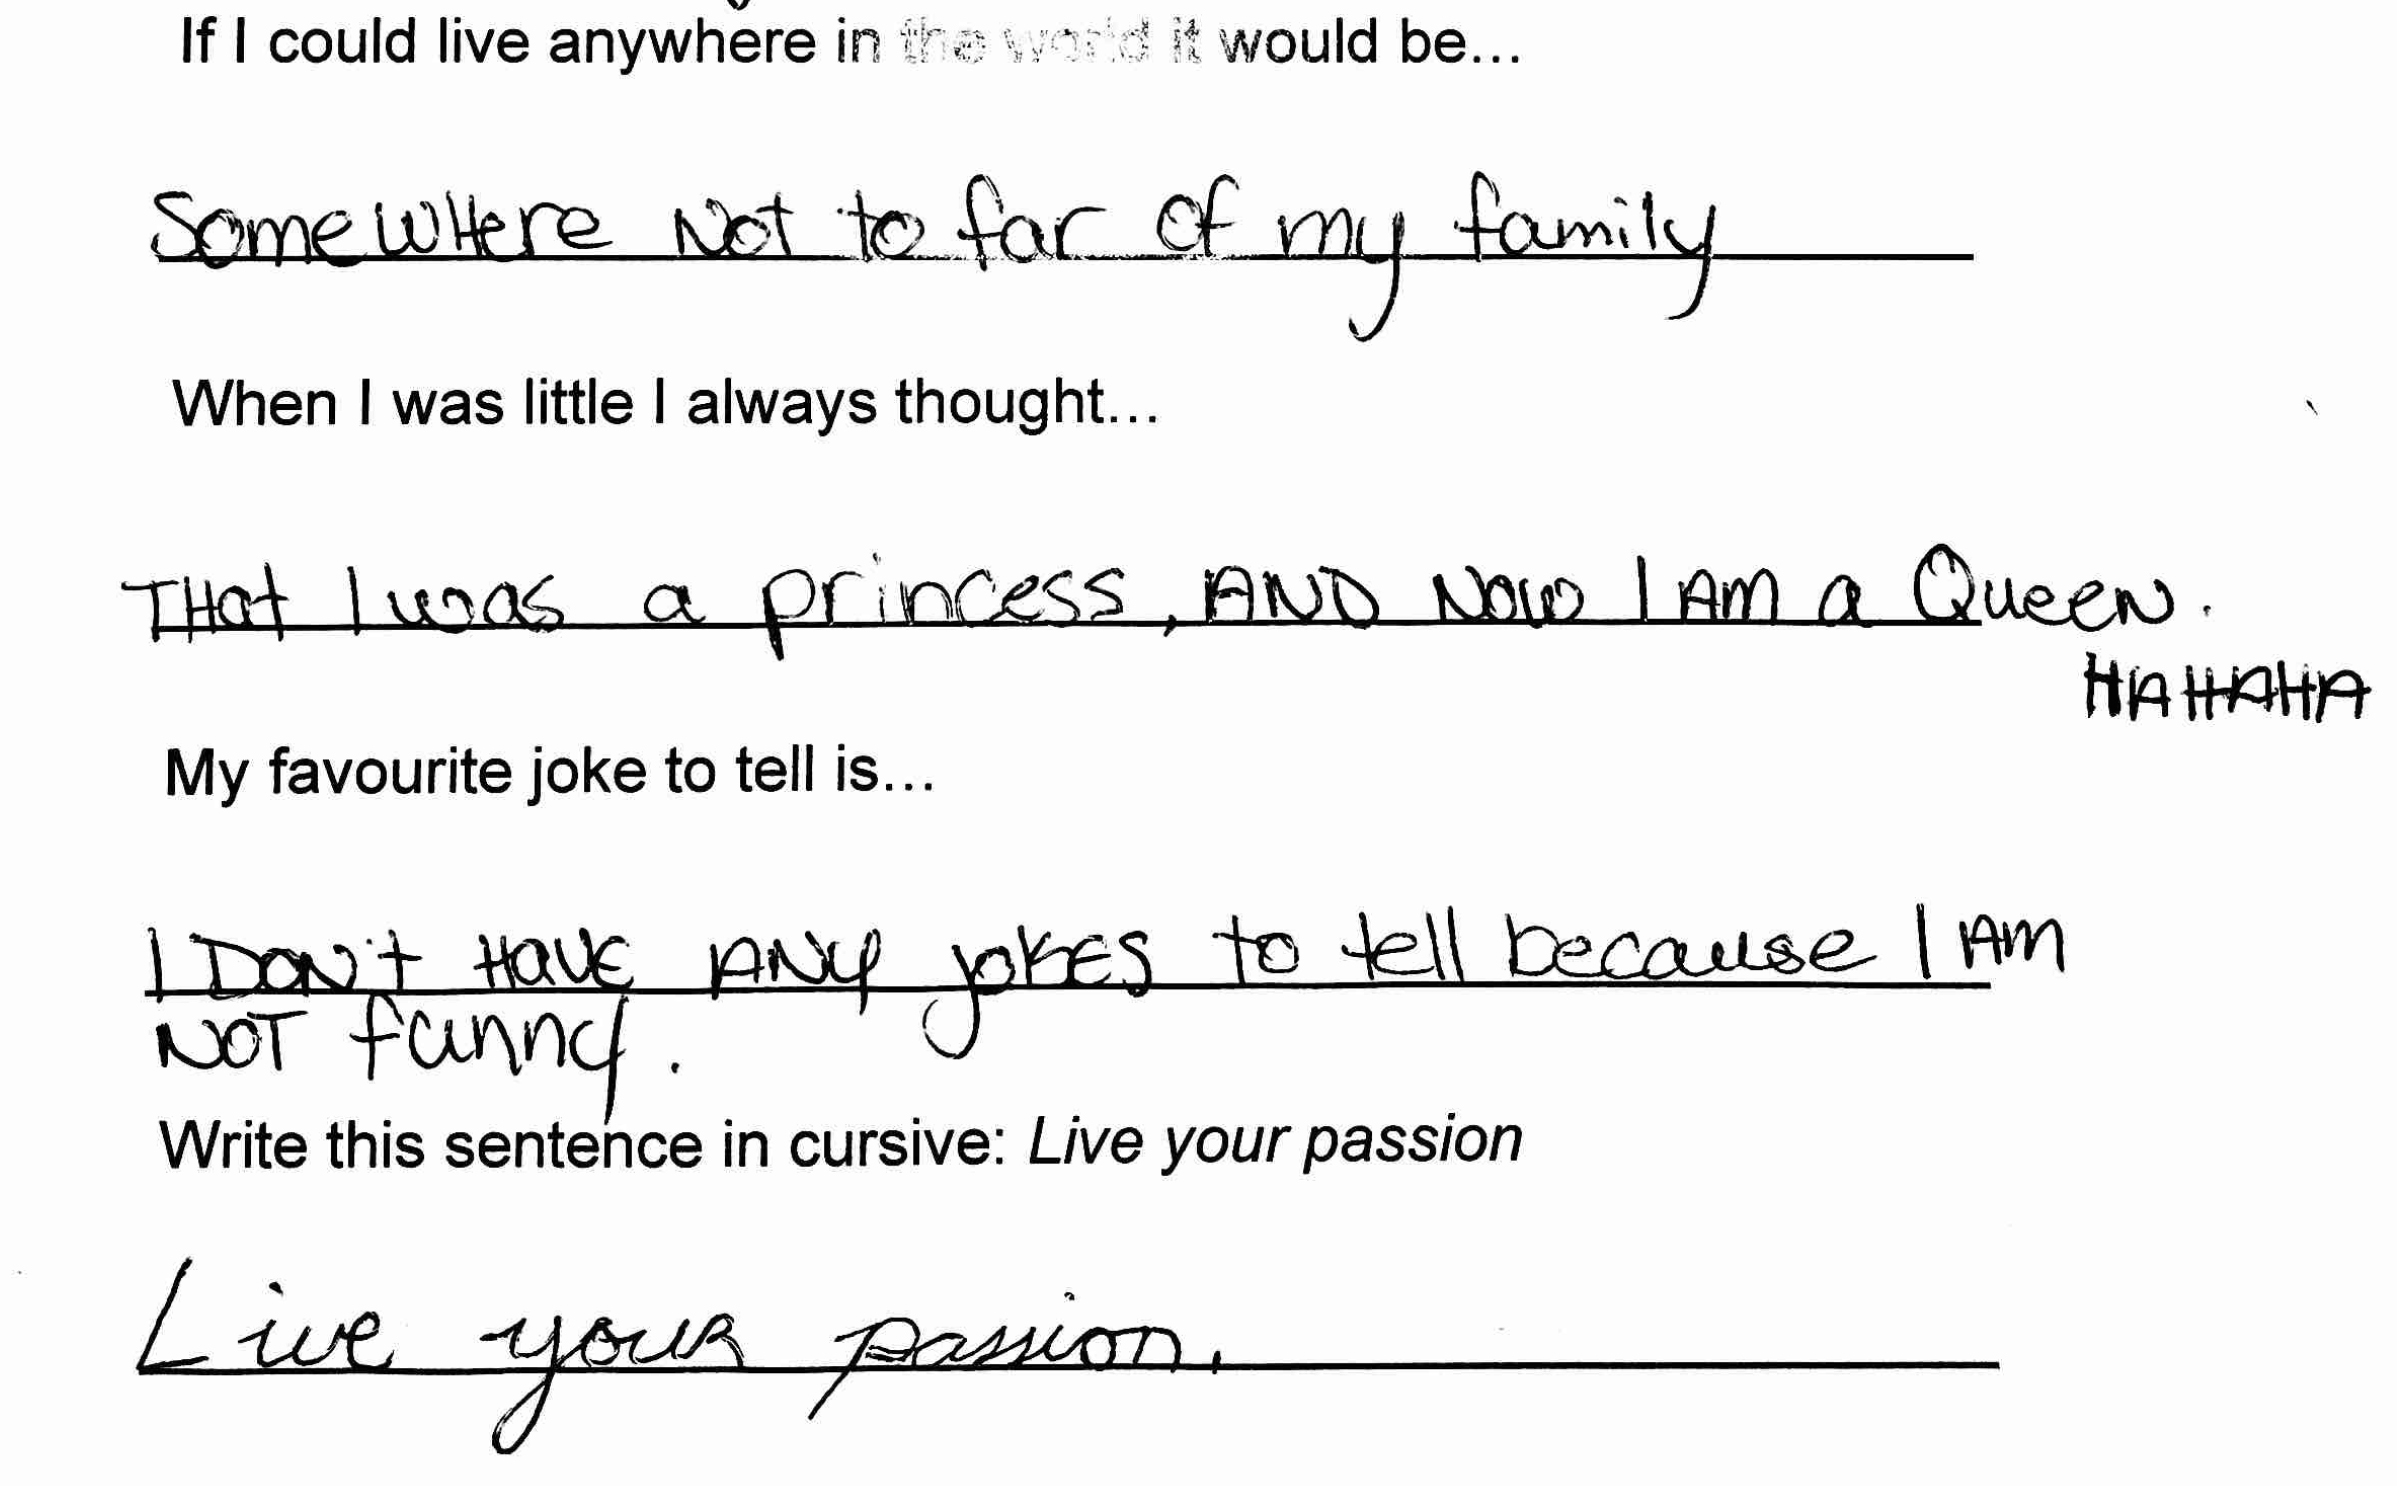 If I could live anywhere in the world it would be...
SomeWHere Not to far of my family
When I was little I always thought...
THat I was a princess, AND NOW I AM a QueeN.
HAHAHA
My favourite joke to tell is...
I DON't HAVE ANy jokES to tell because I AM
NOT funny.
Write this sentence in cursive: Live your passion
Live your passion.